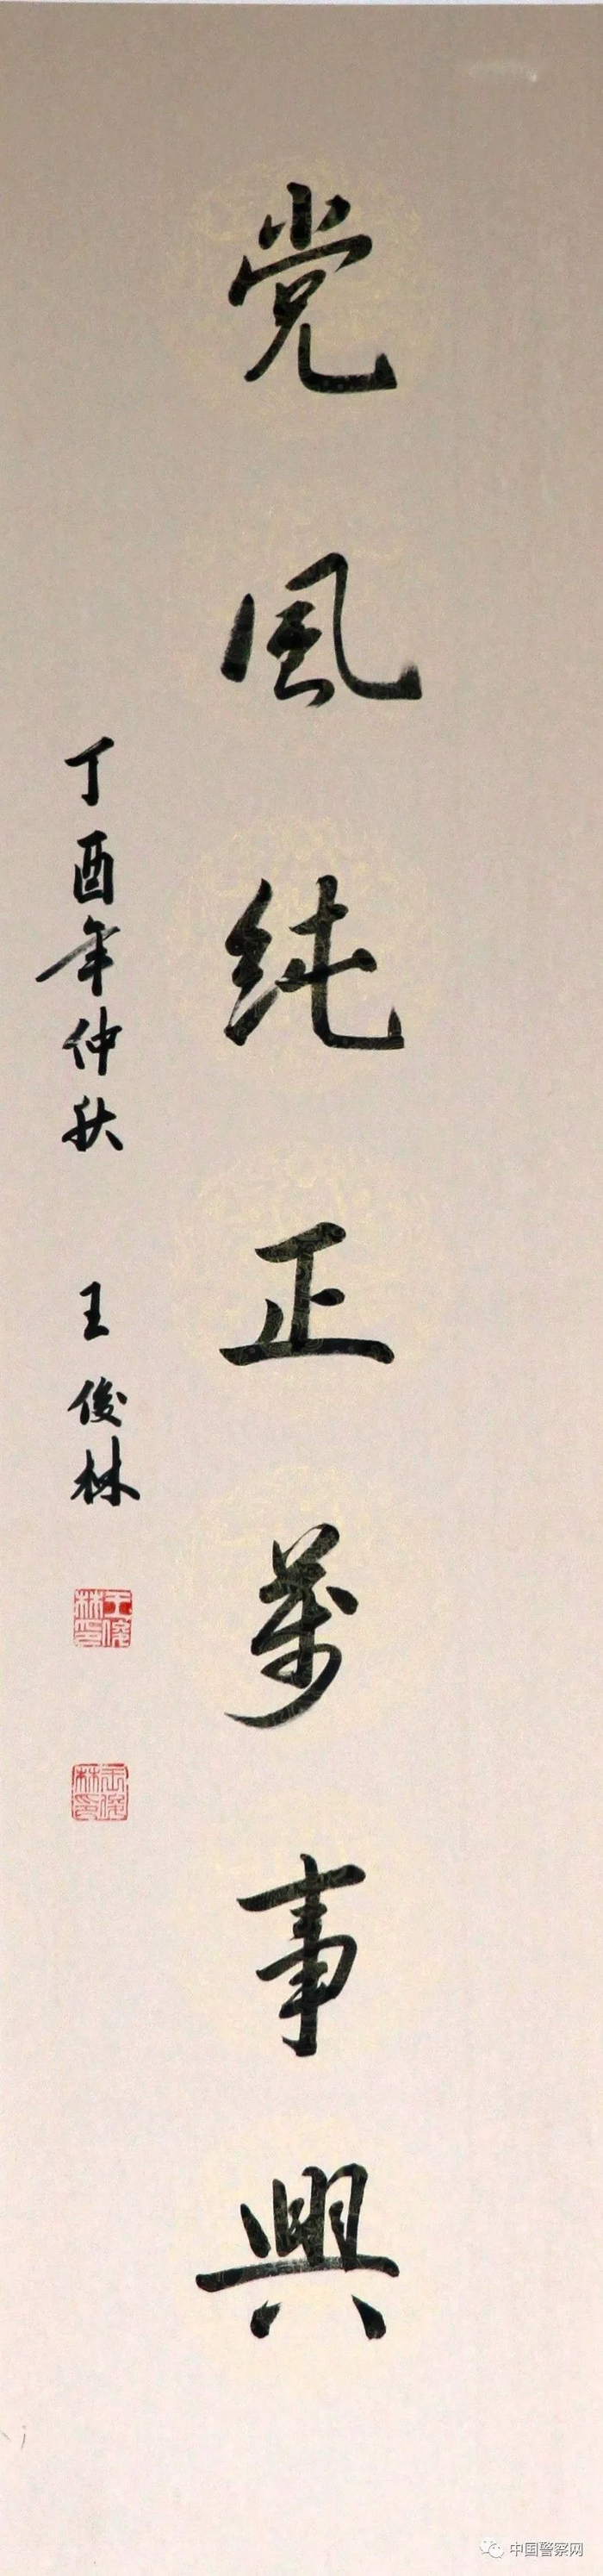 党風纯正萬事興
丁酉年仲秋 王俊林
王俊林印
王俊林印
中国警察网